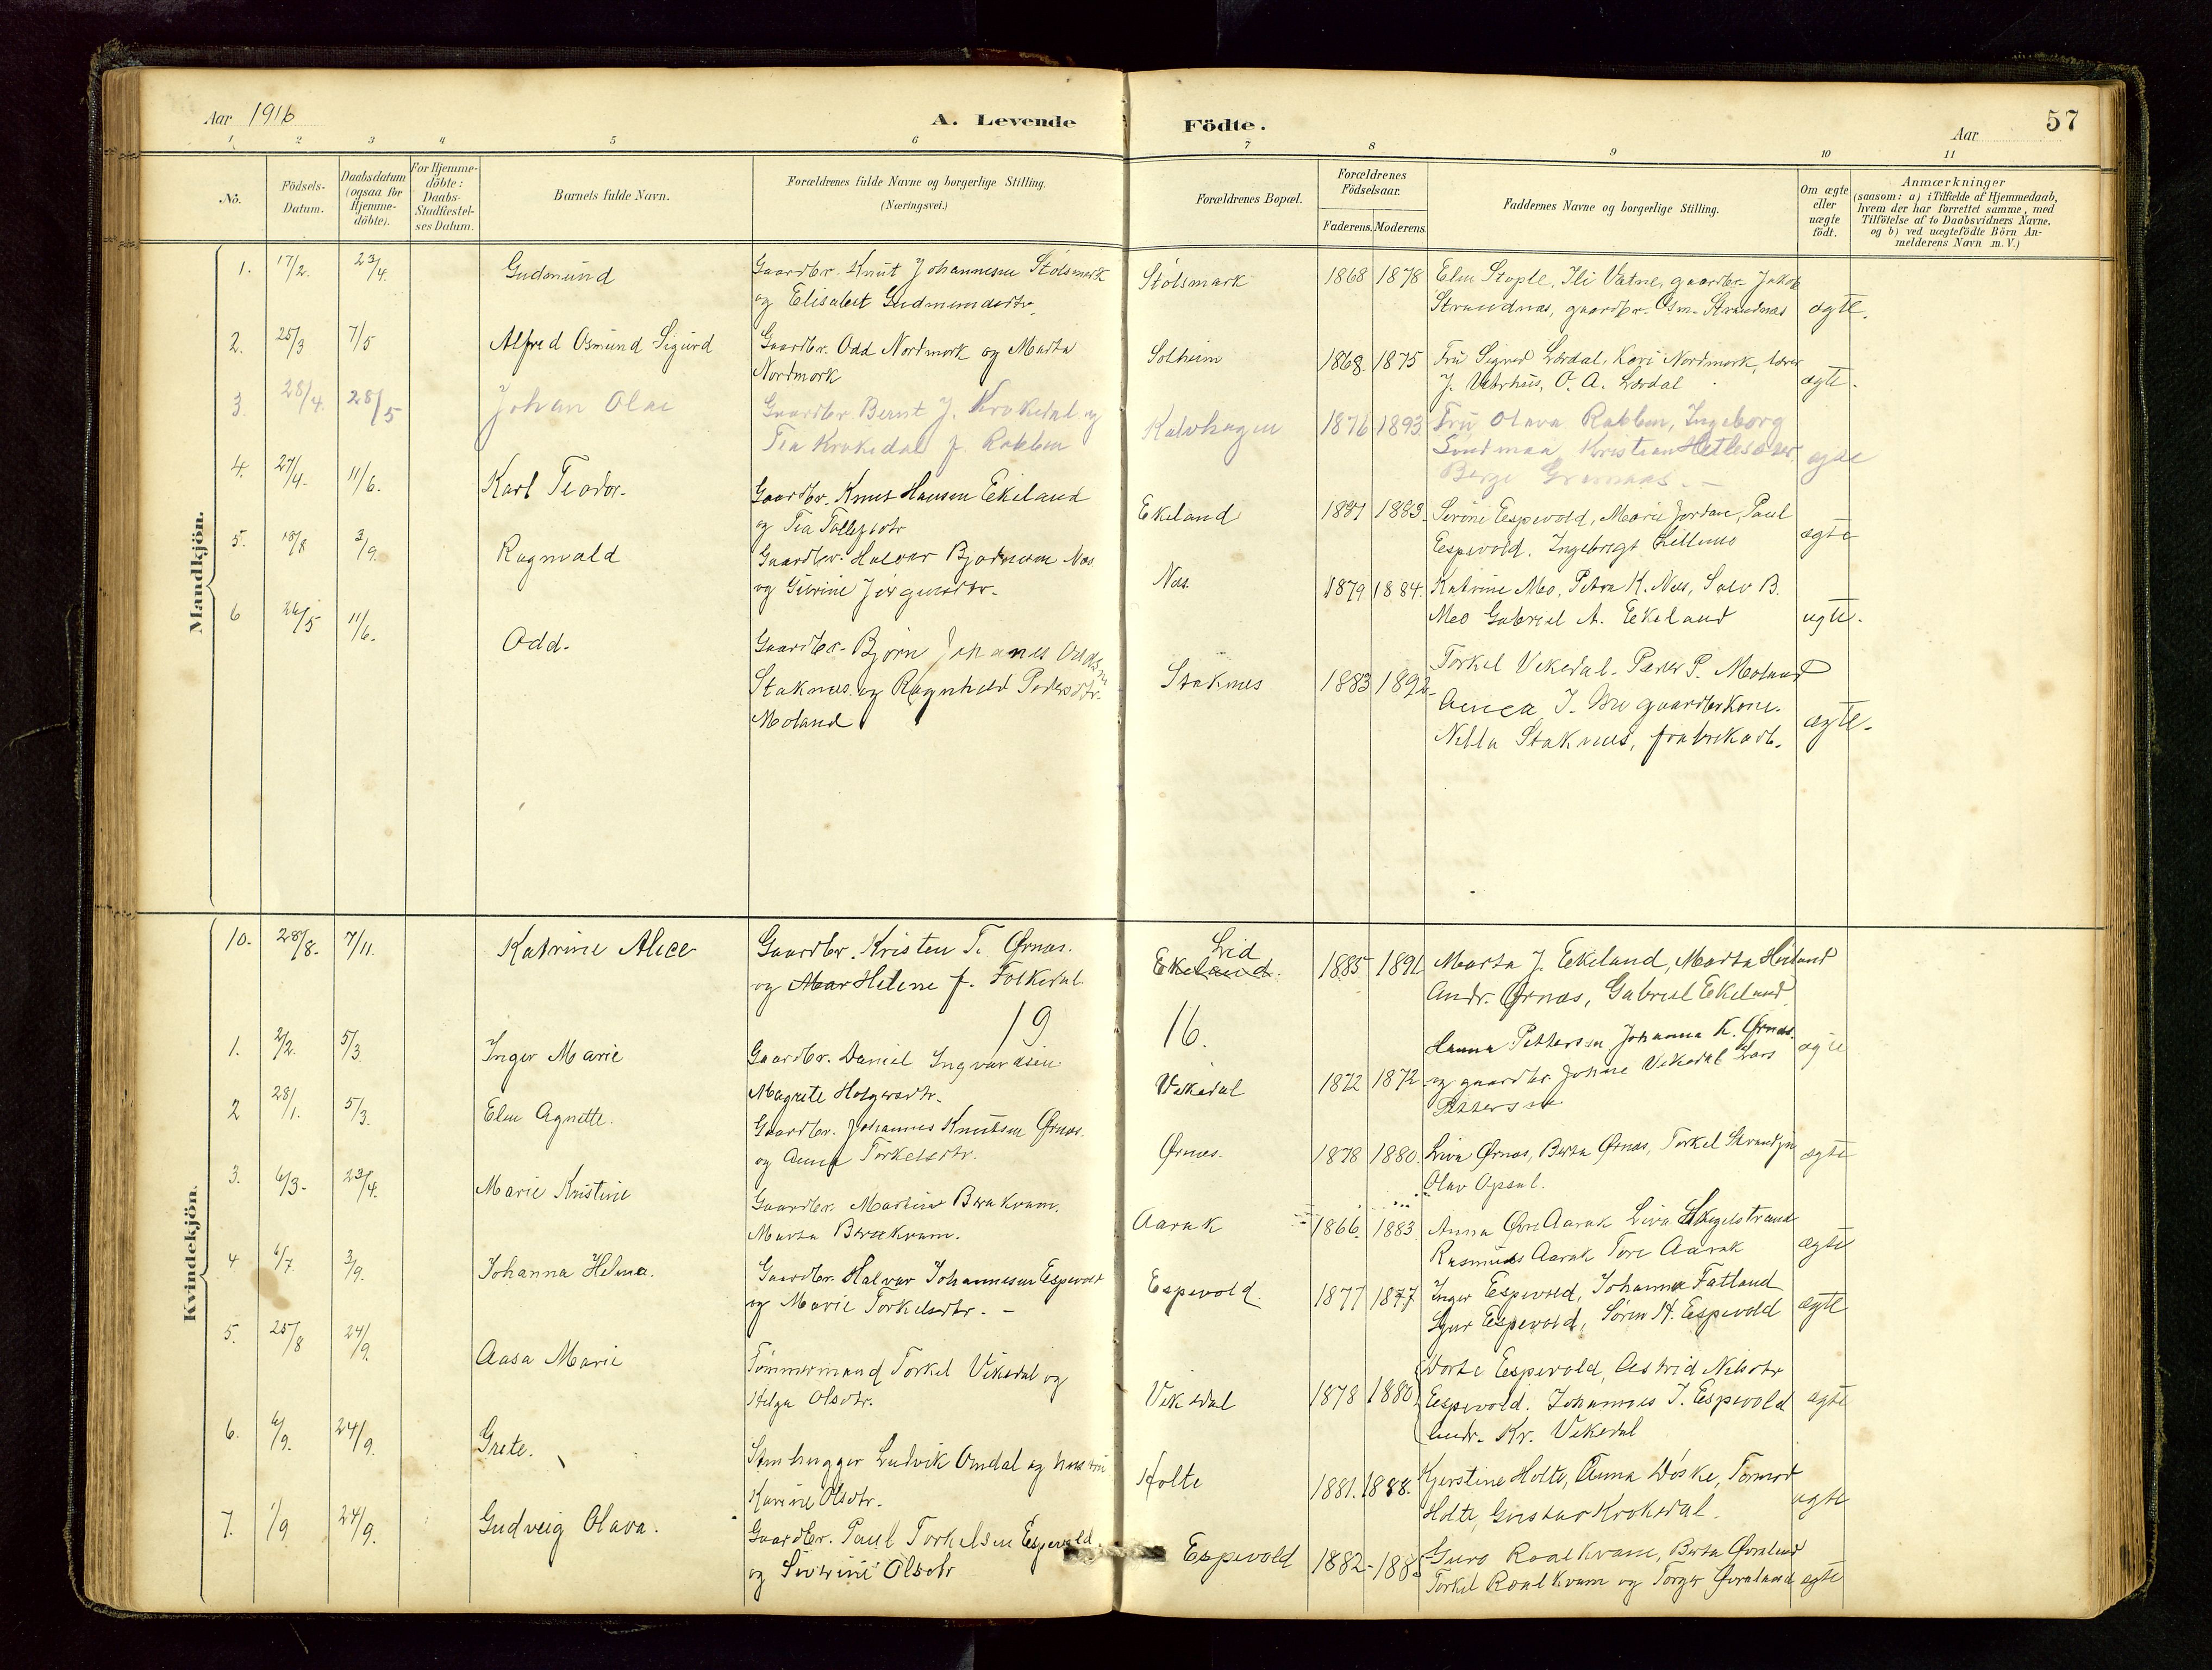 Aar 1916
A. Levende Födte.
Aar
57
1 2 3 4 5 6 7 8 9 10 11
No.
Födsels-Datum.
Daabsdatum (ogsaa for Hjemme-döbte).
For Hjemme-döbte: Daabs-Stadfæstel-ses Datum.
Barnets fulde Navn.
Forældrenes fulde Navne og borgerlige Stilling. (Næringsvei.)
Forældrenes Bopæl.
Forældrenes Födselsaar.
Faderens. Moderens.
Faddernes Navne og borgerlige Stilling.
Om ægte eller uægte födt.
Anmærkninger
(saasom: a) i Tilfælde af Hjemmedaab, hvem der har forrettet samme, med Tilföielse af to Daabsvidners Navne, og b) ved uægtefödte Börn An-melderens Navn m. V.)
Mandkjön.
1. 17/2. 23/4. Gudmund Gaardbr. Knut Johannesen Stolsmark Stolsmark 1868 1878 Elen Stople, Ili Vatne, gaardbr. Jakob
og Elisabet Gudmundsdtr. Strandnas, gaardbr. Osm. Strandnas ægte.
2. 25/3 7/5 Alfred Osmund Sigurd Gaardbr. Odd Nordmork og Marta Solheim 1868 1875 Fru Signed Lærdal, Kari Nordmork, lærer
Nordmork J. Vatrhus, O. A. Lærdal ægte.
3. 28/4. 28/5 Johan Olai Gaardbr Bernt J. Krokedal og Kalvhagen 1876 1893 Fru Olava Rabben, Ingeborg
Tea Krokedal f. Rabben Kristian Hetlesater
Berge ægte
4. 27/4. 11/6. Karl Teodor. Gaardbr. Knut Hansen Ekeland Ekeland 1883. Espevold, Marie Jordan, Paul
og Tea Espevold. Ingebrigt ægte
5. 18/8 3/9. Ragnvald Gaardbr. Halvar Bjørnsen Næs Næs. 1879 1884. Katrine Meo, Petra K. Næs, Salv B.
og Jørgensdtr. Meo Gabriel A. Ekeland ægte.
6 26/5 11/6. Odd. Gaardbr. Bjørn Johannes Oddsen Staknes 1883 1892. Torkel Vekedal. Peder P. Moland
Staknes og Ragnhild Pedersdtr. J. gaardbrkone.
Moland Nilla Staknes, fabrikarb. ægte.
Kvindekjön.
10. 28/8. 7/11. Katrine Alice Gaardbr. Kristen T. Ørnæs. Lid Ekeland. 1885 1891 Marta J. Ekeland, Marta
og Mar Helene f. Folkedal Andr. Ørnæs, Gabriel Ekeland
19 16.
1. 2/2. 5/3. Inger Marie Gaardbr. Daniel Ingvardsen Vekedal 1872 1872 Hanna Pettersen Johanna K. Ørnæs. ægte
Magrete Holgersdtr. og gaardbr. Johne Vekedal Lars
Pettersen
2 28/1. 5/3. Elen Agnette. Gaardbr. Johannes Knutsen Ørnæs. Ørnæs. 1878 1880. Liva Ørnæs, Berta Ørnæs, Torkel
og Anna Torkelsdtr. Olav Opsal. ægte
3. 6/3. 23/4. Marie Kristine Gaardbr. Martin Berakvam. Aarak 1866. 1883 Anna Øvre Aarak Liva Skogestrand
Marta Berakvam. Rasmus Aarak Tore Aarak ægte
4 6/7. 3/9. Johanna Helma. Gaardbr. Halvar Johannesen Espevold Espevold. 1877 1877 Inger Espevold, Johanna Fatland
og Marie Torkelsdtr. – Espevold, Søren H. Espevold ægte
5. 25/8 24/9. Aasa Marie Tømmermand Torkel Vikedal og Vikedal 1878 1880 Dorte Espevold, Astrid Nilsdtr
Helga Olsdtr. Espevold. Johannes J. Espevold ægte
Andr. Kr. Vekedal
6. 6/9. 24/9. Grete. Stenhugger Ludvik Omdal og hustru Holte 1881. 1888. Kjerstine Holte, Anna Døske, Tormod
Karine Olsdtr. Holte, Gustav Krokedal. ægte
7. 1/9 24/9. Gudveig Olava. Gaardbr. Paul Torkelsen Espevold Espevold 1882- Guro Roalkvam, Berta Øvraland
og Severine Olsdtr Torkel Roalkvam og Torger Øvraland ægte